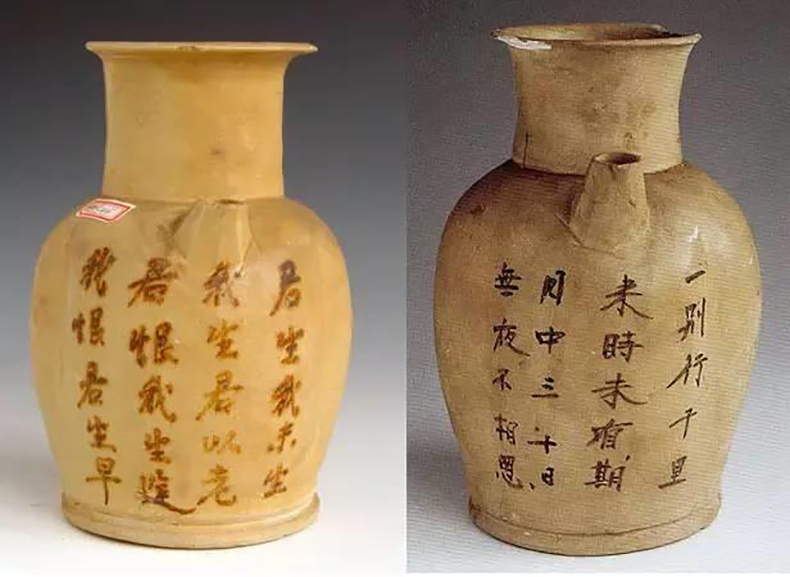 君生我未生
我生君以老
君恨我生遲
我恨君生早
一別行千里
来時未有期
月中三十日
無夜不相思